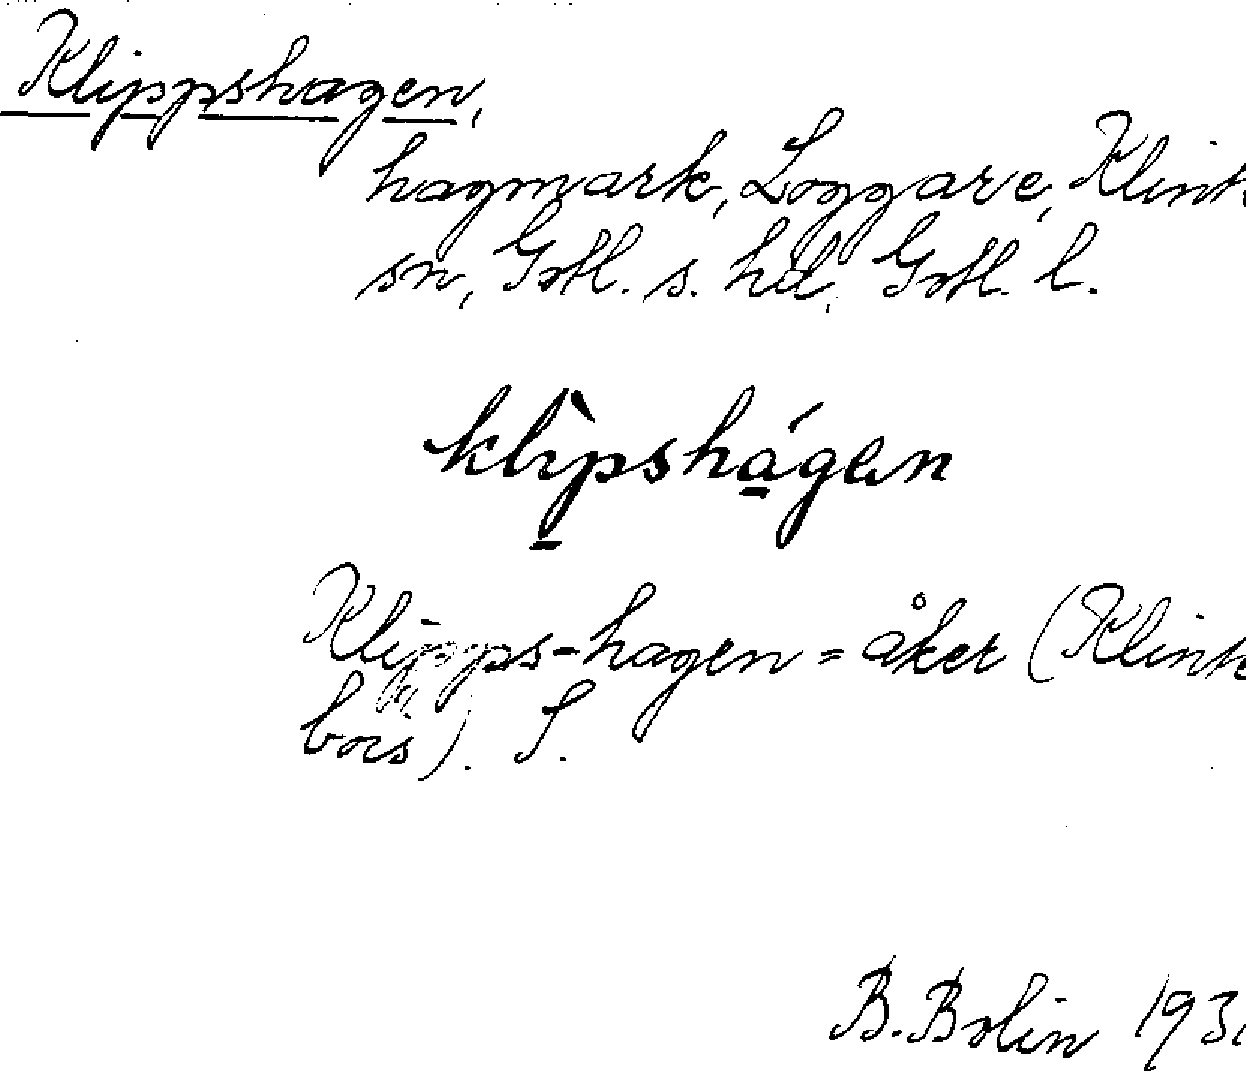 Klippshagen,
hagmark, Loggare, Klint
sn, Gotl. s. hd, Gotl. l.
klìpshágen
Klipps-hagen = åker (Klint
bois). S.
B. Bolin 193